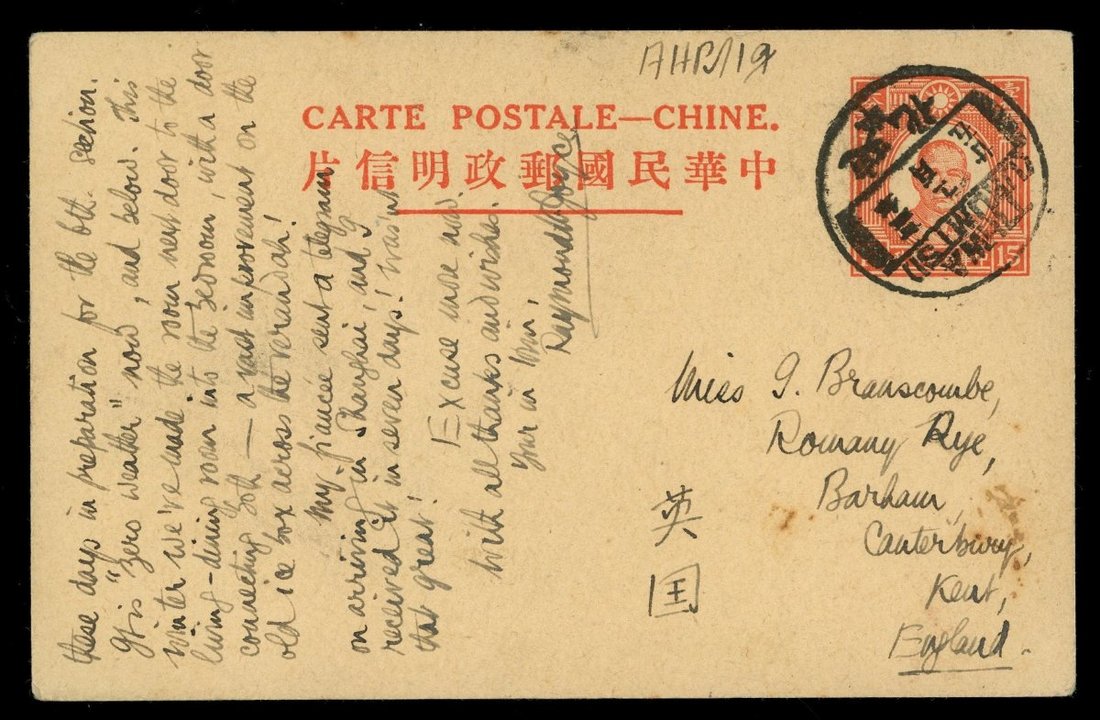 AHPA19
CARTE POSTALE—CHINE.
片信明政郵國民華中
15
these days in preparation for the 6th section.
It is "zero weather" now, and below. This
winter we've made the room next door to the
living-dining room into the bedroom, with a door
connecting both — a vast improvement on the
old ice box across the verandah!
My fiancée sent a telegram
on arriving in Shanghai, and I
received it in seven days! Wasn't
that great!
Excuse more now
With all thanks and wishes.
Your in Him,
Raymond Joyce
Miss J. Branscombe,
Romany Rye,
Barham,
Canterbury,
Kent,
England.
英
国